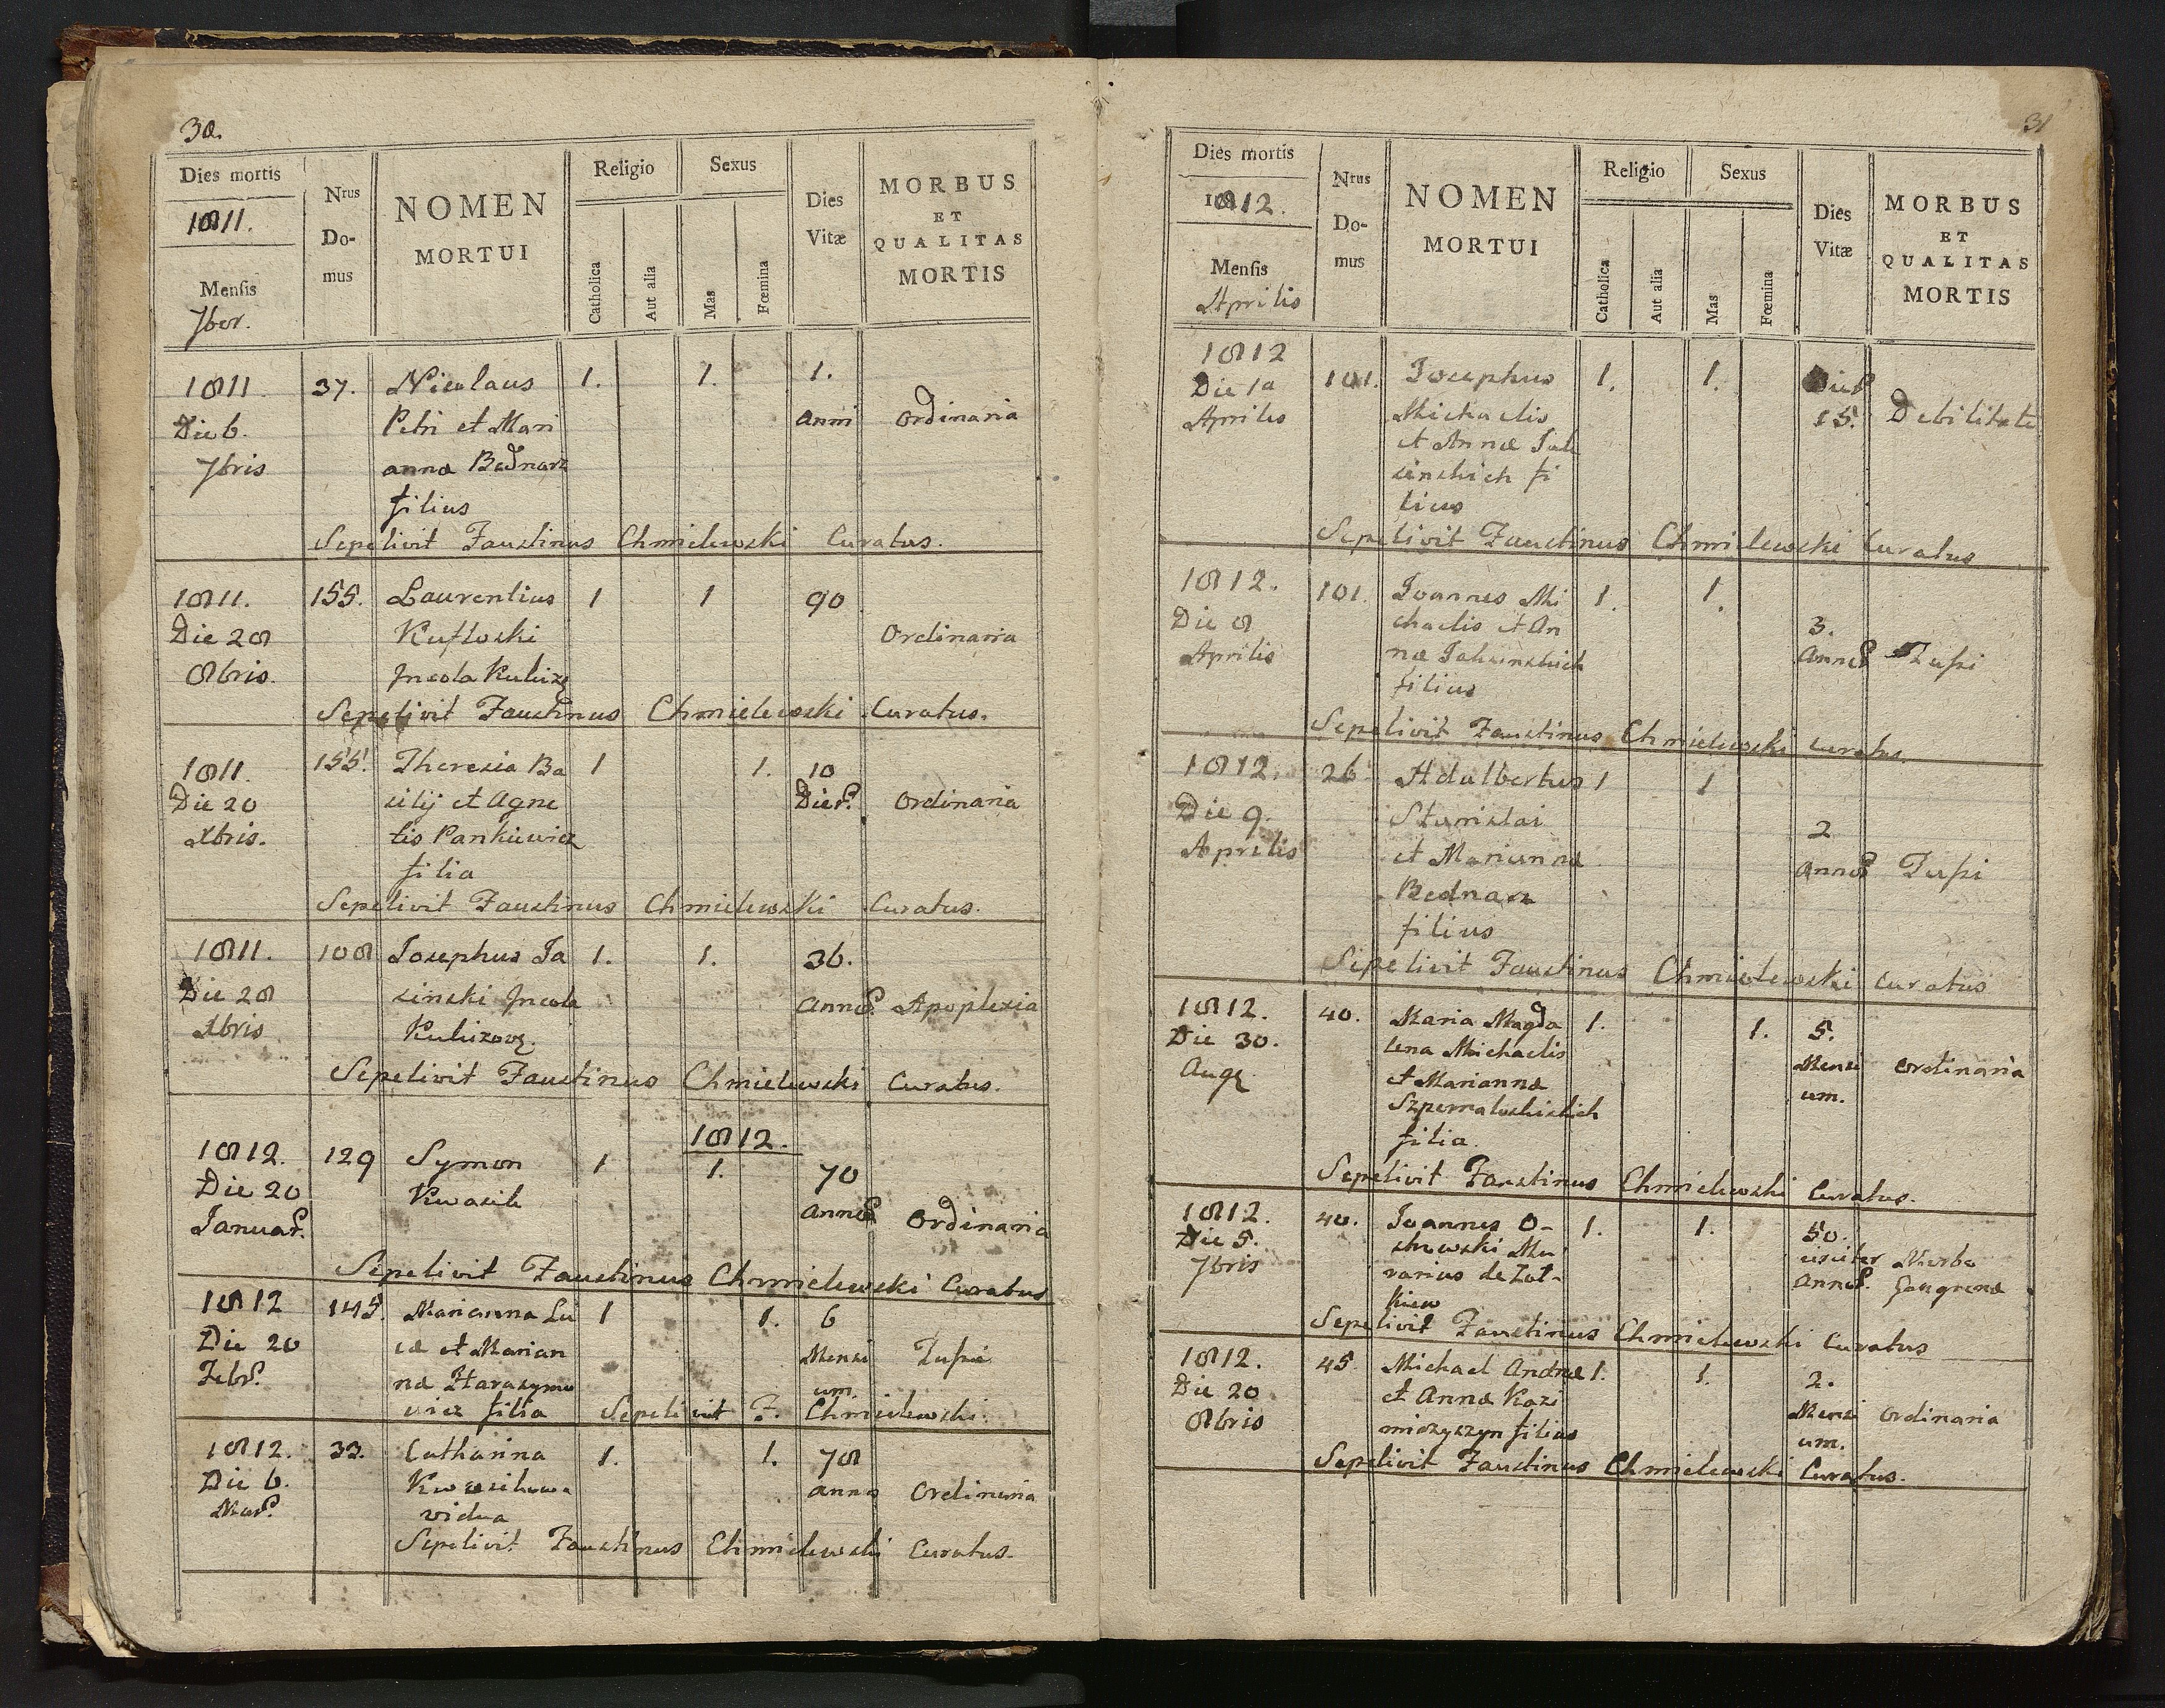 30.
Dies mortis
1811.
Mensis
7ber.
Nrus
Do-
mus
NOMEN
MORTUI
Religio
Catholica
Aut alia
Sexus
Mas
Fœmina
Dies
Vitæ
MORBUS
ET
QUALITAS
MORTIS
1811 37. Nicolaus 1. 1. 1.
Die 6. Petri et Mari Anni Ordinaria
7bris anna Bednarz
filius
Sepelivit Faustinus Chmielewski Curatus.
1811. 155. Laurentius 1 1 90
Die 28 Ordinaria
8bris. Incola
Sepelivit Faustinus Chmielewski Curatus.
1811. 155. Theresia Ba 1 1. 10
Die 20 silij et Agne Dier. Ordinaria
Xbris. tis Pankiewicz
filia
Sepelivit Faustinus Chmielewski Curatus.
1811. 108 Josephus Ja 1. 1. 36.
Die 28 sinski Incola Annor. Apoplexia
Xbris
Sepelivit Faustinus Chmielewski Curatus.
1812.
1812. 129 Symon 1 1. 70
Die 20 Kwasik Annor. Ordinaria
Januar.
Sepelivit Faustinus Chmielewski Curatus
1812 145. Marianna Lu 1 1. 6
Die 20 cæ et Marian Mensi Tussi
Febr. næ Harasymo um.
wicz filia Sepelivit F. Chmielewski.
1812. 33. Catharina 1. 1. 78
Die 6. Kwasikowa Annor Ordinaria
Mar. vidua
Sepelivit Faustinus Chmielewski Curatus.
31
Dies mortis
1812.
Mensis
Aprilis
Nrus
Do-
mus
NOMEN
MORTUI
Religio
Catholica
Aut alia
Sexus
Mas
Fœmina
Dies
Vitæ
MORBUS
ET
QUALITAS
MORTIS
1812
Die 1a 101. Josephus 1. 1. Dier
Aprilis Michaelis 15. Debilitate
et Annæ Jak
sinskich fi
lius
Sepelivit Faustinus Chmielewski Curatus
1812. 101. Joannes Mi 1. 1.
Die 8 chaelis et An 3.
Aprilis næ Annor Tussi
filius
Sepelivit Faustinus Chmielewski Curatus.
1812. 26 Adalbertus 1 1
Die 9. Stanislai 2
Aprilis et Mariannæ Annor Tussi
Bednarz
filius
Sepelivit Faustinus Chmielewski Curatus
1812. 40. Maria Magda 1. 1. 5.
Die 30. lena Michaelis Mensi Ordinaria
Aug et Mariannæ um.
filia.
Sepelivit Faustinus Chmielewski Curatus.
1812. 40. Joannes O- 1. 1. 50.
Die 5. strowski Mu circiter Morbo
7bris rarius de Zol- Annor. Gangrenæ
kiew
Sepelivit Faustinus Chmielewski Curatus
1812. 45. Michael Andreæ 1. 1. 2.
Die 20 et Annæ Kazi Mensi Ordinaria
8bris mirzyszyn filius um.
Sepelivit Faustinus Chmielewski Curatus.